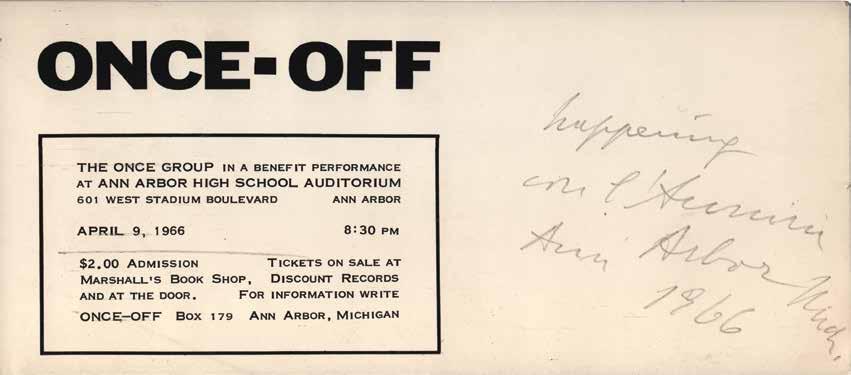 ONCE-OFF
THE ONCE GROUP IN A BENEFIT PERFORMANCE
AT ANN ARBOR HIGH SCHOOL AUDITORIUM
601 WEST STADIUM BOULEVARD ANN ARBOR
APRIL 9, 1966 8:30 PM
$2.00 ADMISSION TICKETS ON SALE AT
MARSHALL'S BOOK SHOP, DISCOUNT RECORDS
AND AT THE DOOR. FOR INFORMATION WRITE
ONCE-OFF BOX 179 ANN ARBOR, MICHIGAN
happening
con l'
Ann Arbor Mich.
1966